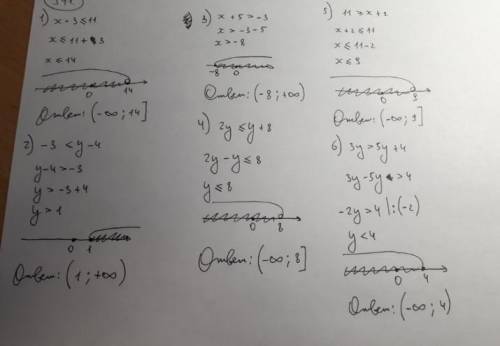 1) x - 3 ≤ 11
x ≤ 11 + 3
x ≤ 14
0 14
Ответ: (-∞; 14]
2) -3 < y - 4
y - 4 > -3
y > -3 + 4
y > 1
0 1
Ответ: (1; +∞)
3) x + 5 > -3
x > -3 - 5
x > -8
-8 0
Ответ: (-8; +∞)
4) 2y ≤ y + 8
2y - y ≤ 8
y ≤ 8
0 8
Ответ: (-∞; 8]
5) 11 ≥ x + 2
x + 2 ≤ 11
x ≤ 11 - 2
x ≤ 9
0 9
Ответ: (-∞; 9]
6) 3y > 5y + 4
3y - 5y > 4
-2y > 4 |: (-2)
y < 4
0 4
Ответ: (-∞; 4)